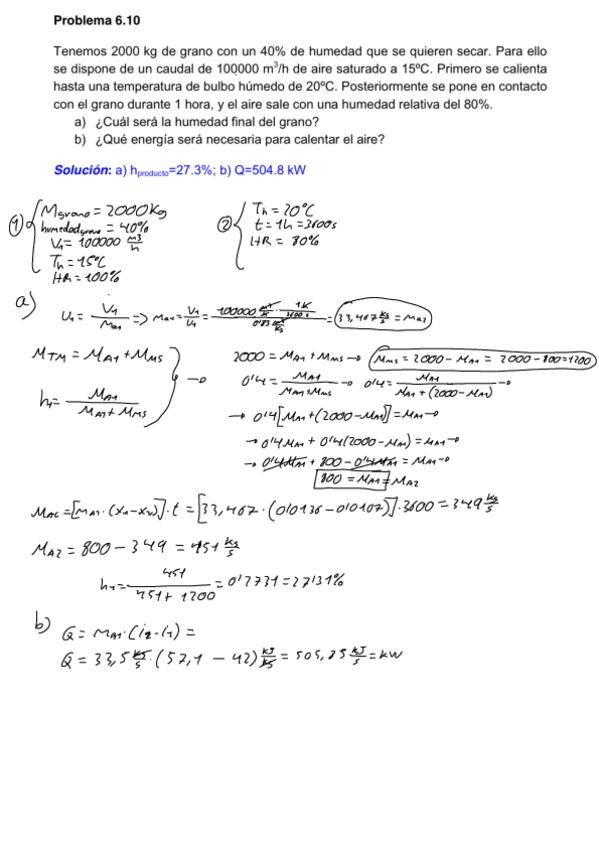 Problema 6.10
Tenemos 2000 kg de grano con un 40% de humedad que se quieren secar. Para ello
se dispone de un caudal de 100000 m³/h de aire saturado a 15ºC. Primero se calienta
hasta una temperatura de bulbo húmedo de 20ºC. Posteriormente se pone en contacto
con el grano durante 1 hora, y el aire sale con una humedad relativa del 80%.
a) ¿Cuál será la humedad final del grano?
b) ¿Qué energía será necesaria para calentar el aire?
Solución: a) hproducto=27.3%; b) Q=504.8 kW
① Mgrano = 2000Kg
humedadgrano = 40%
V₁ = 100000 m3/h
Th = 15ºC
HR = 100%
② Th = 20ºC
t = 1h = 3600s
HR = 80%
a) υ₁ = V₁/Ma1 => Ma1 = V₁/υ₁ = (100000 m³/h · 1h/3600s)/(0'83 m³/Kg) = 33,467 kg/s = Ma2
MTM = MA1 + MMS
h₁ = MA1/(MA1 + MMS)
2000 = MA1 + MMS → MMS = 2000 - MA1 = 2000 - 800 = 1200
0'4 = MA1/(MA1+MMS) → 0'4 = MA1/(MA1 + (2000 - MA1)) →
→ 0'4[MA1 + (2000 - MA1)] = MA1 →
→ 0'4MA1 + 0'4(2000 - MA1) = MA1 →
→ 0'4MA1 + 800 - 0'4MA1 = MA1 →
800 = MA1 = MA2
= [MA1 · (] · t = [33,467 · (0'0136 - 0'0107)] · 3600 = 349 kg/s
MA2 = 800 - 349 = 451 kg/s
= 451/(451 + 1200) = 0'2731 = 27'31%
b) Q = MA1 · (i₂ - i₁) =
Q = 33,5 kg/s · (57,1 - 42) kJ/kg = 505,85 kJ/s = kW